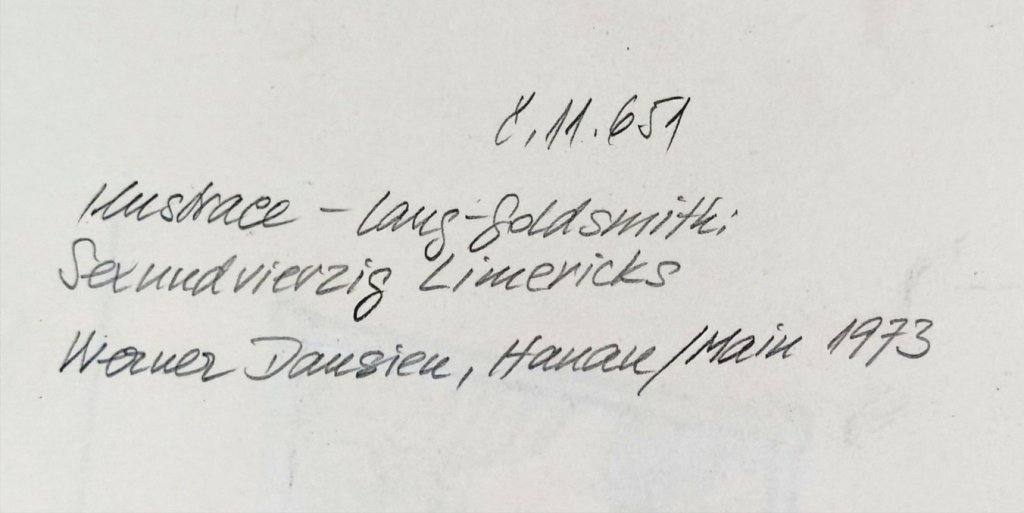 č. 11.651
Ilustrace - Lang-Goldsmith:
Sexundvierzig Limericks
Werner Dausien, Hanau/Main 1973